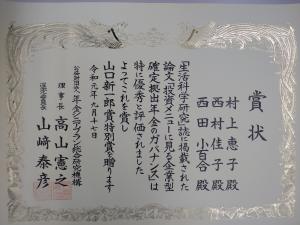 賞状
村上恵子殿
西村佳子殿
西田小百合殿
「生活科学研究誌に掲載された
論文「投資メニューに見る企業型
確定拠出年金のガバナンス」は
特に優秀と評価されました
よってこれを賞し
山口新一郎賞特別賞を贈ります
令和元年九月十七日
公益財団法人 年金シニアプラン総合研究機構
理事長 高山憲之
選考委員長 山﨑泰彦